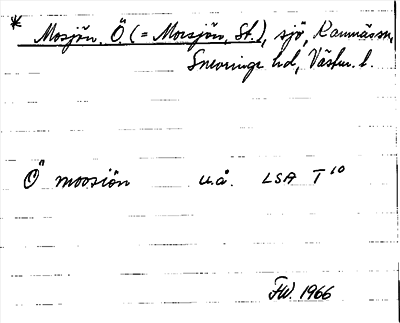 * Mosjön, Ö. (= Morsjön, St.), sjö, Kumnäs sn,
Snevringe hd, Västm. l.
Ö moosiön u.å. LSA T 10
FW. 1966